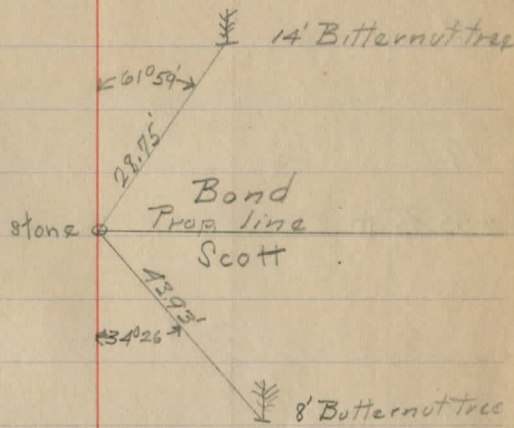 14' Bitternut tree
61°59'
28.75'
Bond
stone
Prop. line
Scott
43.93'
34°26
8' Butternut tree